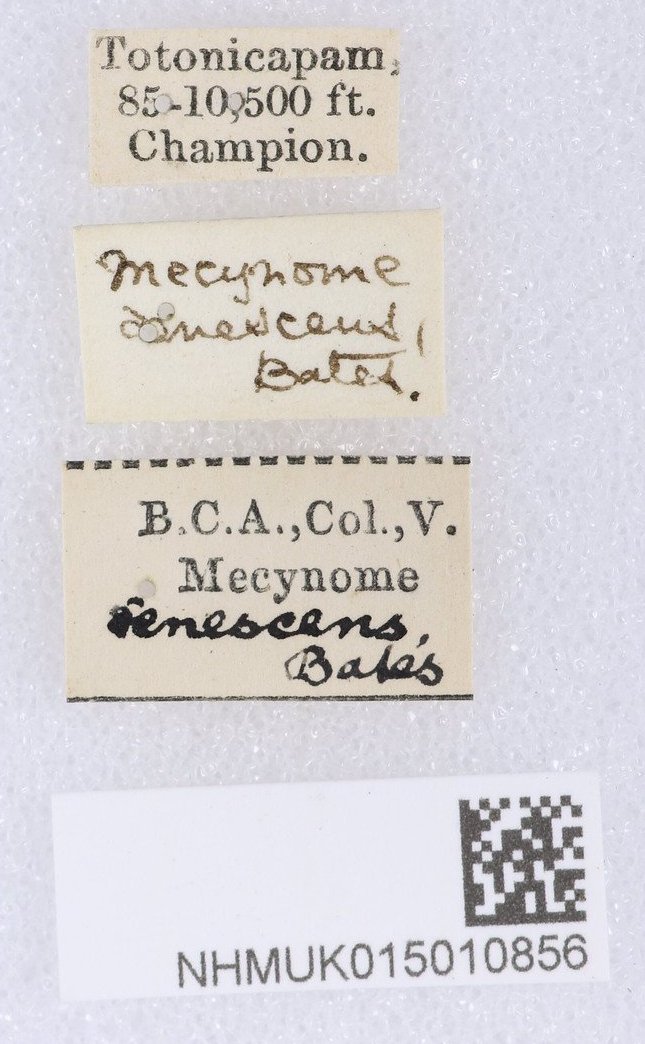 Totonicapam,
85-10,500 ft.
Champion.
Mecynome
senescens,
Bates.
B.C.A.,Col.,V.
Mecynome
senescens,
Bates
NHMUK015010856